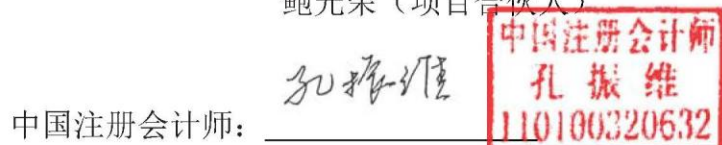 鲍光荣（项目合伙人）
中国注册会计师
孔振维
孔振维
110100320632
中国注册会计师：